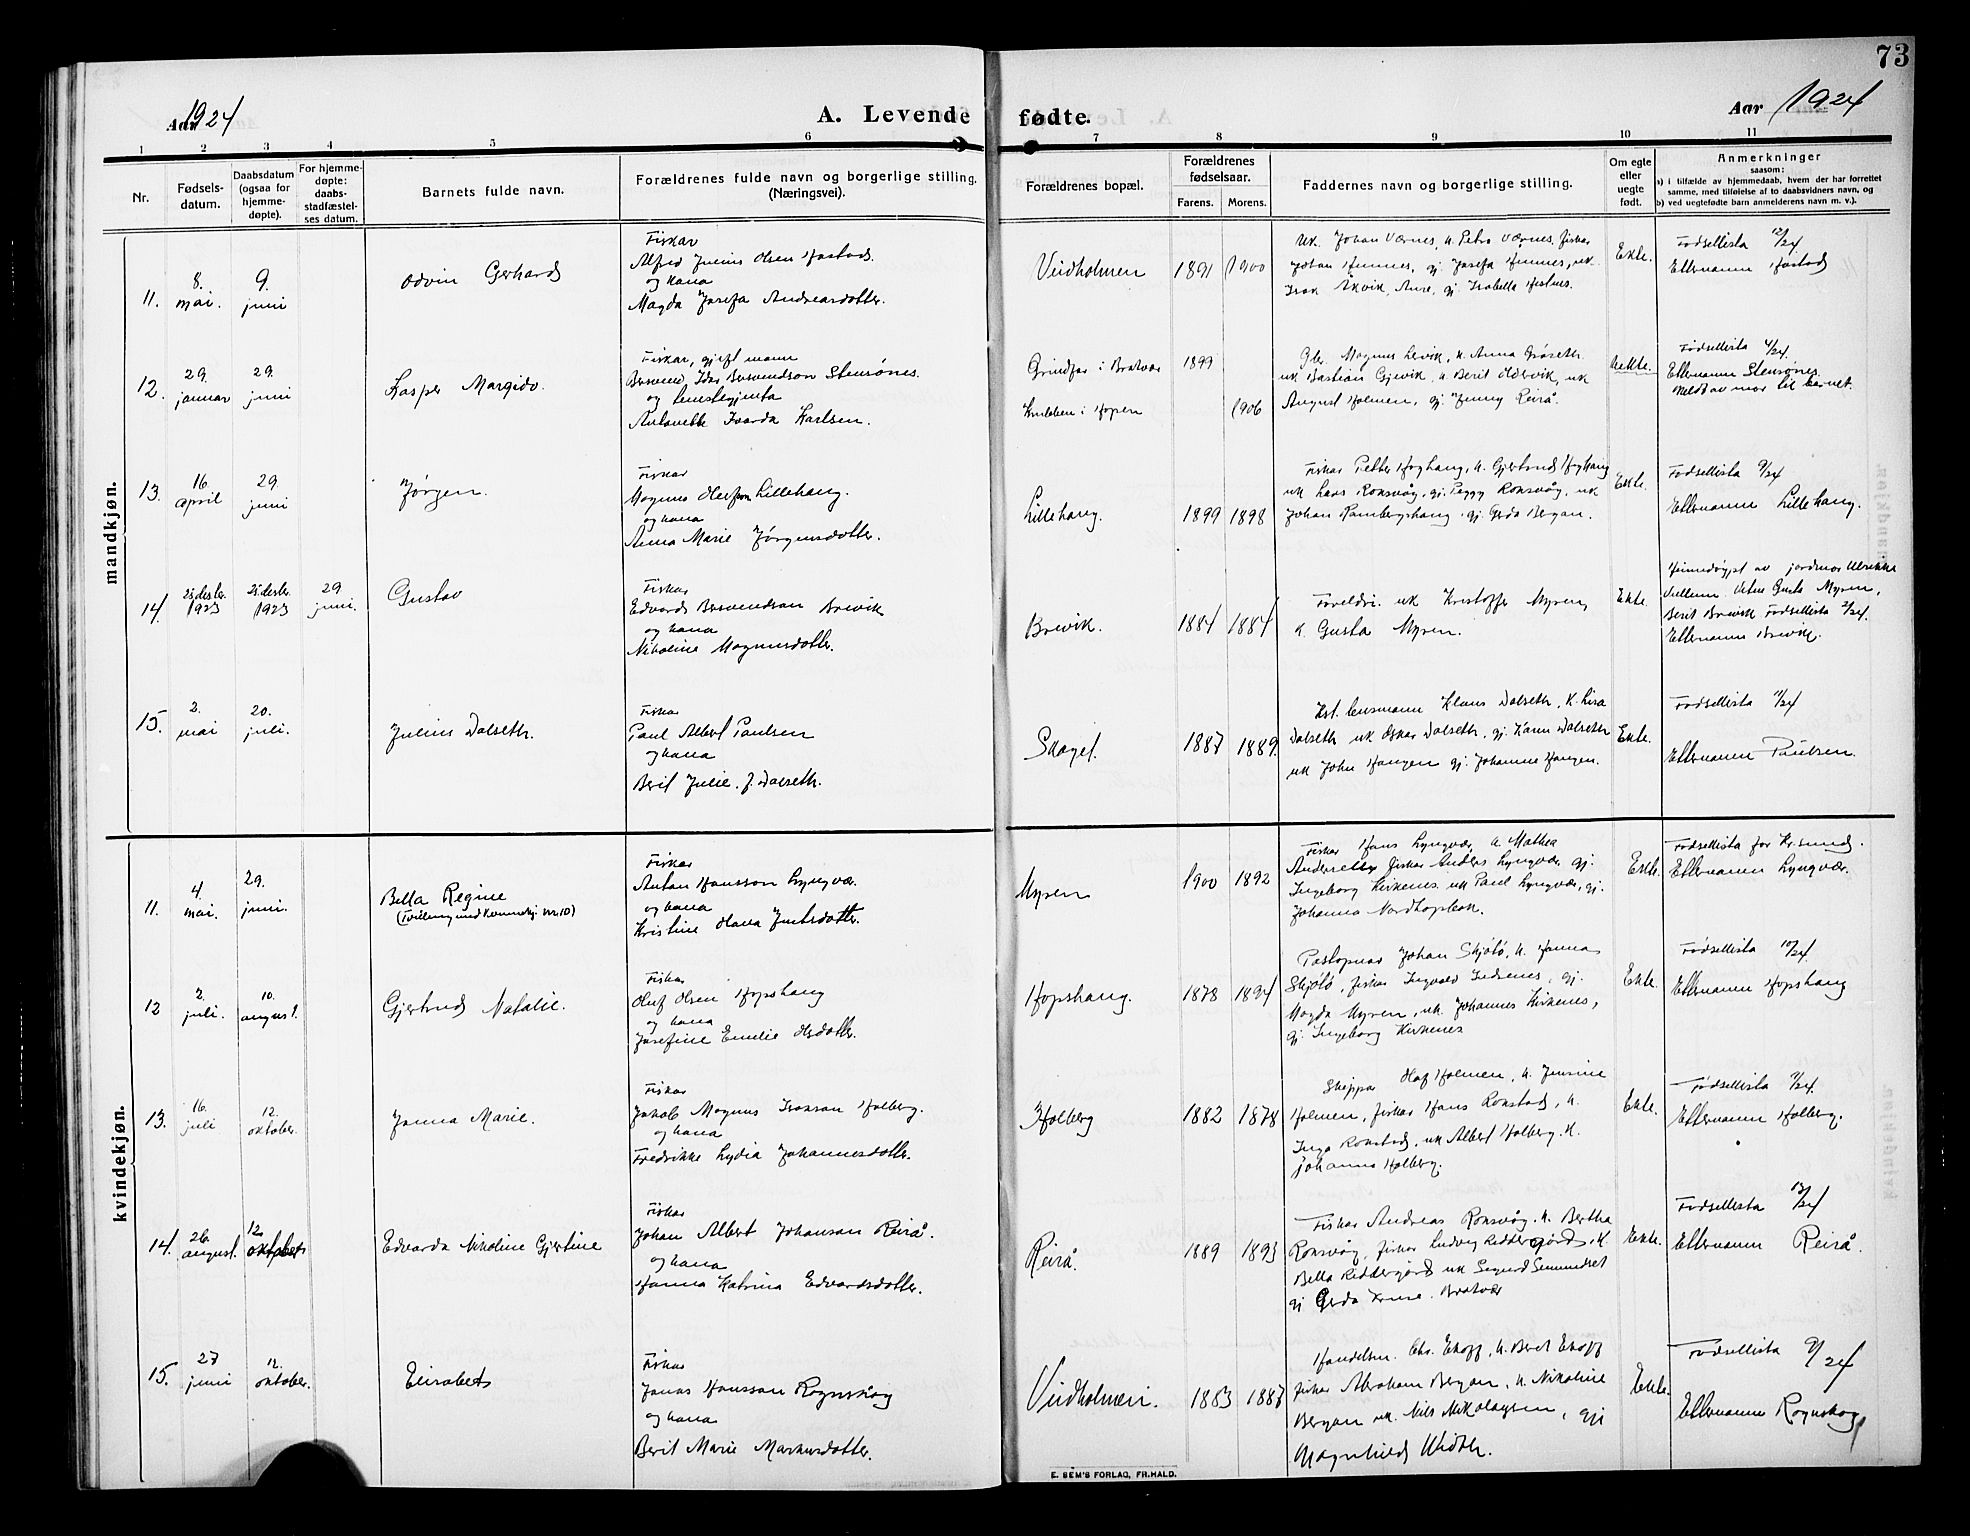 73
Aar 1924
A. Levende fødte.
Aar 1924
1 2 3 4 5 6 7 8 9 10 11
Nr.
Fødsels-
datum.
Daabsdatum
(ogsaa for
hjemme-
døpte).
For hjemme-
døpte:
daabs-
stadfæstel-
ses datum.
Barnets fulde navn.
Forældrenes fulde navn og borgerlige stilling.
(Næringsvei).
Forældrenes bopæl.
Forældrenes
fødselsaar.
Farens. Morens.
Faddernes navn og borgerlige stilling.
Om egte
eller
uegte
født.
Anmerkninger
saasom:
a) i tilfælde av hjemmedaab, hvem der har forrettet
samme, med tilføielse af to daabsvidners navn, og
b) ved uegtefødte barn anmelderens navn m. v.).
mandkjøn.
11.
8.
mai.
9.
juni
Odvin Gerhard
Fiskar
Alfred Julius Olsen Hastad
og kona
Magda Josefa Andreasdotter.
Veidholmen
1891 1900
uk. Johan Værnes, k. Petra Værnes, fiskar
Johan Hemnes, gj. Josefa Hemnes, uk.
Isak Ekvik, Aure, gj. Isabella
Ekte.
Fødsellista 12/24
Etternamn Hastad
12.
29.
januar
29.
juni
Kasper Margido.
Fiskar, gift mann
Bersvend Idar Bersvendson Stensønes.
og tenestegjenta
Antonette Ivarda Karlsen.
Grindfar i Bratvær 1899
i Hopen 1906
Magnus Leivik, k. Anna
uk Bastian Gjevik, k. Berit Oldervik, uk
August Holmen, gj. Jenny Reirå.
Uekte.
Fødsellista 4/24.
Etternamn Stensønes.
Meldt av mor til barnet.
13.
16.
april
29.
juni
Jørgen.
Fiskar
Magnus Olerson Lillehaug.
og kona
Anna Marie Jørgensdotter.
Lillehaug.
1899 1898
Fiskar Petter Hoghaug, k. Gjertrud Hoghaug
uk Lars Ronsvåg, gj. Peggy Ronsvåg, uk
Johan Rambergshaug, gj. Gerda Bergan.
Ekte.
Fødsellista 9/24
Etternamn Lillehaug.
14.
25. desbr.
1923
25. desbr.
1923
29
juni.
Gustav
Fiskar
Edvard Bersvendson Breivik
og kona
Nikoline Magnusdotter.
Breivik.
1884 1884
Foreldri. uk Kristoffer Myren,
k. Gusta Myren.
Ekte.
Heimedøypt av jordmor Ulrikke
Villum. Vitne Gusta Myren,
Berit Breivik Fødsellista 2/24.
Etternamn Breivik.
15.
2.
mai
20.
juli.
Julius Dalseth.
Fiskar
Paul Albert Paulsen
og kona
Berit Julie. f. Dalseth.
Skaget.
1887 1889.
Kst. lensmann Klaus Dalseth, k. Lisa
Dalseth uk Oskar Dalseth, gj. Karen Dalseth
uk John Haugen gj. Johanne Haugen.
Ekte.
Fødsellista 11/24
Etternamn Paulsen.
kvindekjøn.
11.
4.
mai.
29.
juni.
Bella Regine
(Tvilling med kvinnekj. nr. 10)
Fiskar
Anton Hansson Lyngvær.
og kona
Kristine Olava Jentsdotter.
Myren
1900 1892
Fiskar Hans Lyngvær, k. Mathea
fiskar Anders Lyngvær, gj.
Ingeborg Kirkenes. uk Paul Lyngvær, gj.
Johanna Nordhopbak.
Ekte.
Fødsellista for Kr.sund.
Etternamn Lyngvær.
12
2.
juli.
10.
august.
Gjertrud Natalie.
Fiskar
Oluf Olsen Hopshaug
og kona
Josefine Emelie Olsdotter.
Hopshaug.
1878 1894
Postopnar Johan Skjølø, k. Hanna
Skjølø, fiskar Ingvald gj.
Magda Myren, uk. Johannes Kirkenes,
gj. Ingeborg Kirkenes
Ekte.
Fødsellista 10/24.
Etternamn Hopshaug
13.
16.
juli
12.
oktober.
Janna Marie.
Fiskar
Jakob Magnus Isakson Holberg.
og kona
Fredrikke Lydia Johannesdotter.
Holberg
1882 1878
Skippar Olaf Holmen, k. Jensine
Holmen, fiskar Hans Ronstad, k.
Inga Ronstad, uk Albert Holberg. k.
Johanna Holberg.
Ekte.
Fødsellista 7/24.
Etternamn Holberg.
14.
26.
august.
12.
oktober
Edvarda Nikoline Gjertine
Fiskar
Johan Albert Johansen Reirå.
og kona
Hanna Katrina Edvardsdotter.
Reirå.
1889 1893
Fiskar Andreas Ronsvåg, k. Bertha
Ronsvåg, fiskar Ludvig Riddergård, k.
Bella Riddergård uk Sigurd Semundset
gj Gerda Bratvær
Ekte.
Fødsellista 13/24
Etternamn Reirå.
15.
27
juni
12.
oktober.
Elisabet
Fiskar
Jonas Hansson Rognskog
og kona
Berit Marie Markusdotter.
Veidholmen.
1883 1887
Handelsm. Chr. Ekoff, k. Beret Ekoff
fiskar Abraham Bergan, k. Nikoline
Bergan uk. Nils Nikolaysen, gj
Magnhild Width.
Ekte.
Fødsellista 9/24
Etternamn Rognskog
E. SEM'S FORLAG, FR.HALD.